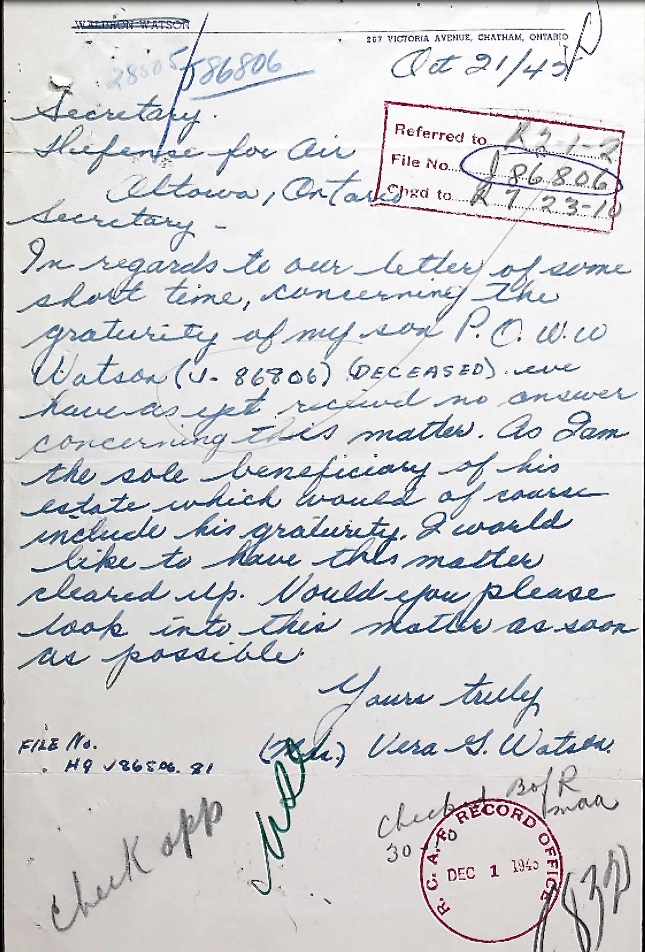 WALDRON WATSON
267 VICTORIA AVENUE, CHATHAM, ONTARIO
Oct 21/45
28505 J86806
Secretary.
Defense for Air
Ottowa, Ontario
Referred to
File No. J86806
Chgd to R 7 23-10
Secretary -
In regards to our letter of some
short time, concerning the
graturity of my son P.O. W.W
Watson (J-86806) (DECEASED). we
have as yet received no answer
concerning this matter. As I am
the sole beneficiary of his
estate which would of course
include his graturity. I would
like to have this matter
cleared up. Would you please
look into this matter as soon
as possible.
Yours truly
(Mrs.) Vera G. Watson.
FILE No.
HQ J86806. 81
check app
Checked B of R
30-10
R.C.A.F. RECORD OFFICE
DEC 1 1945